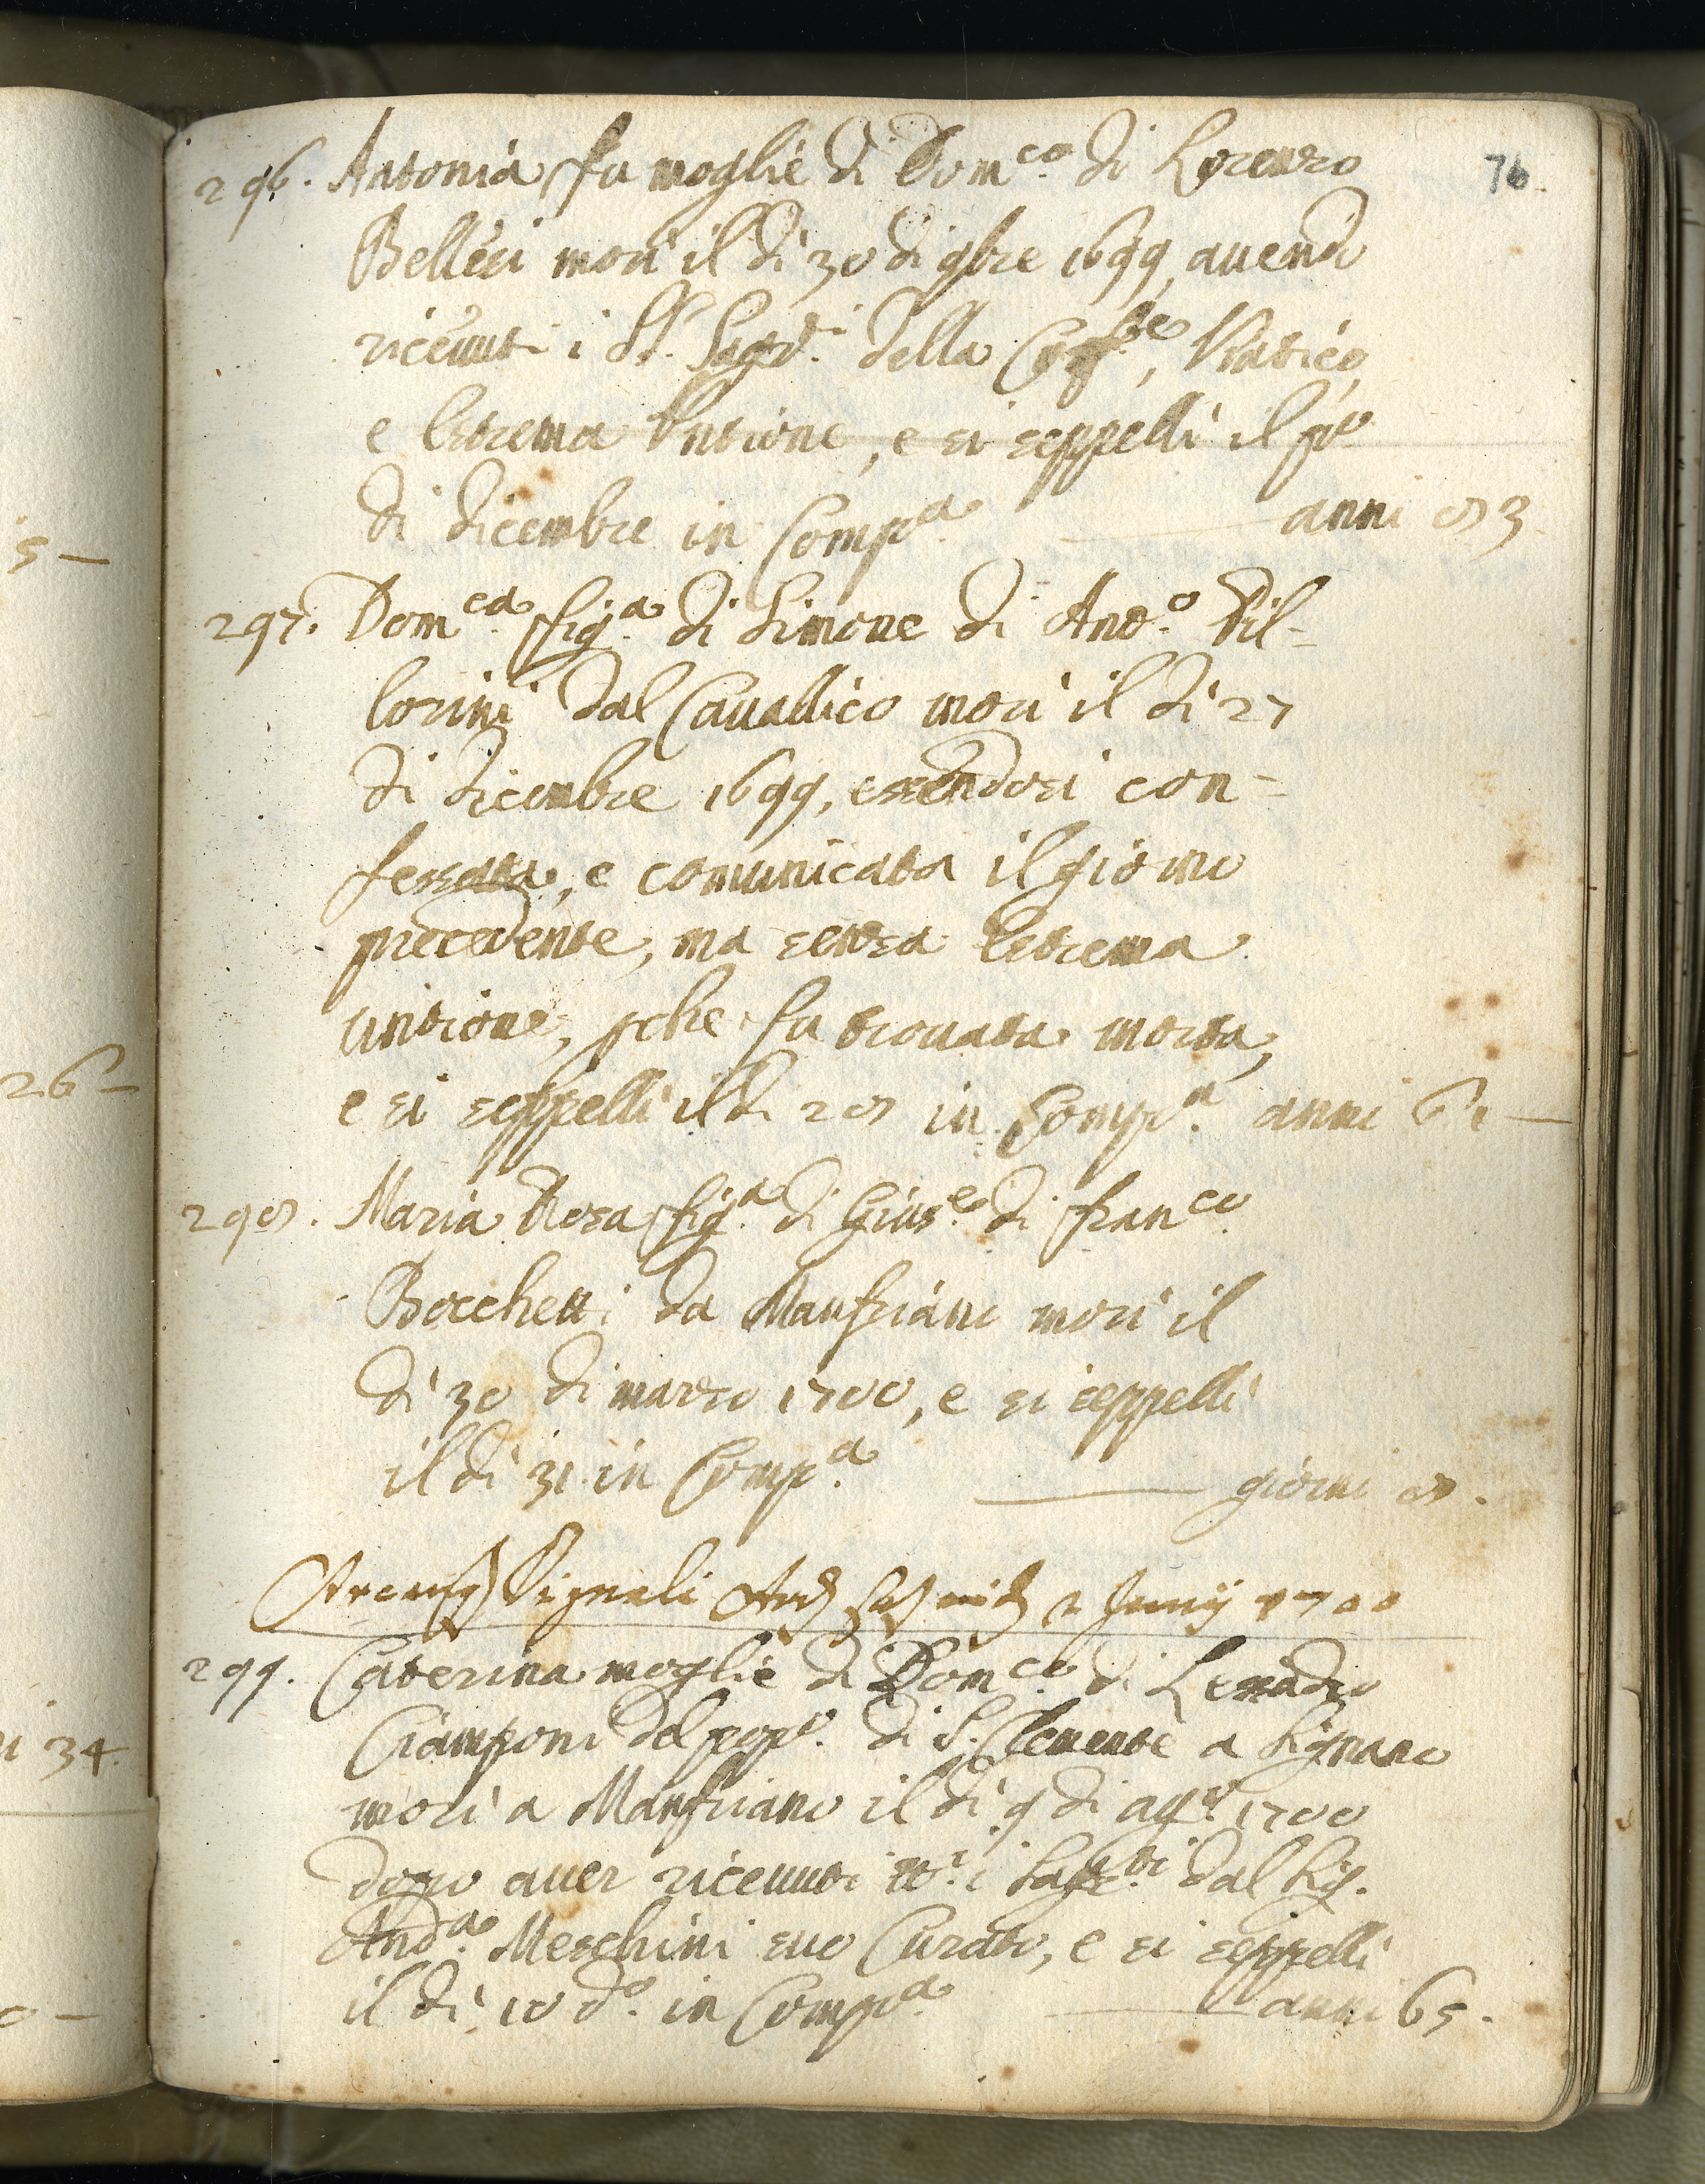 76
296. Antonia fu moglie di Dom.co di Lorenzo
Belleri morì il dì 30 di 9bre 1699, auendo
riceuuti i SS. Sagr.i della Conf.ne, Viatico,
e Estrema Untione, e si seppellì il p.o
di dicembre in Comp.a anni 83
297. Dom.ca fig.a di Simone di Ant.o Pil-
lorini dal Cauallico morì il dì 27
di dicembre 1699, essendosi con-
fessata, e comunicata il giorno
precedente, ma senza Estrema
untione, pche fu trouata morta,
e si seppellì il dì 28 in Comp.a anni 61
298. Maria Rosa fig.a di Gius.e di Fran.co
Bocchetti da Manfriano morì il
dì 30 di marzo 1700, e si seppellì
il dì 31 in Comp.a giorni 8.
Vignali 2 Junij 1700
299. Caterina moglie di Dom.co di Lessadro
Ciamponi del pop.o di S. Clemente a Signano
morì a Manfriano il dì 9 di ag.o 1700
dopo auer riceuuti tt.i i Sagr.ti dal Sig.
And.a Meschini suo Curato, e si seppellì
il dì 10 d.o in Comp.a anni 65.
5
26
34